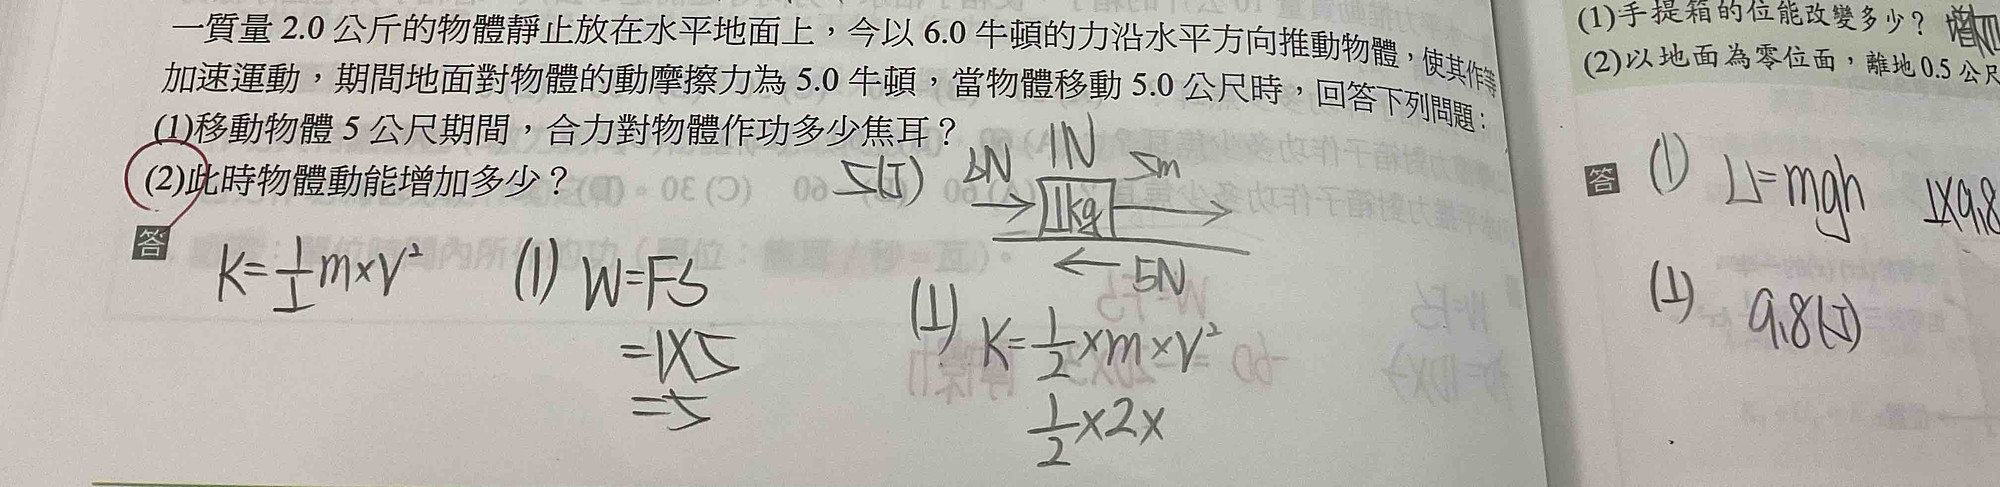 一質量 2.0 公斤的物體靜止放在水平地面上，今以 6.0 牛頓的力沿水平方向推動物體，使其作等
加速運動，期間地面對物體的動摩擦力為 5.0 牛頓，當物體移動 5.0 公尺時，回答下列問題：
(1)移動物體 5 公尺期間，合力對物體作功多少焦耳？
5(J)
(2)此時物體動能增加多少？
1N
5m
5N
答
K=
m×V²
(1) W=FS
=1×5
=5
K=½×m×V²
½×2×
(1)手提箱的位能改變多少？
(2)以地面為零位面，離地0.5 公尺
答
(1)
=mgh
1×9.8
9.8(J)